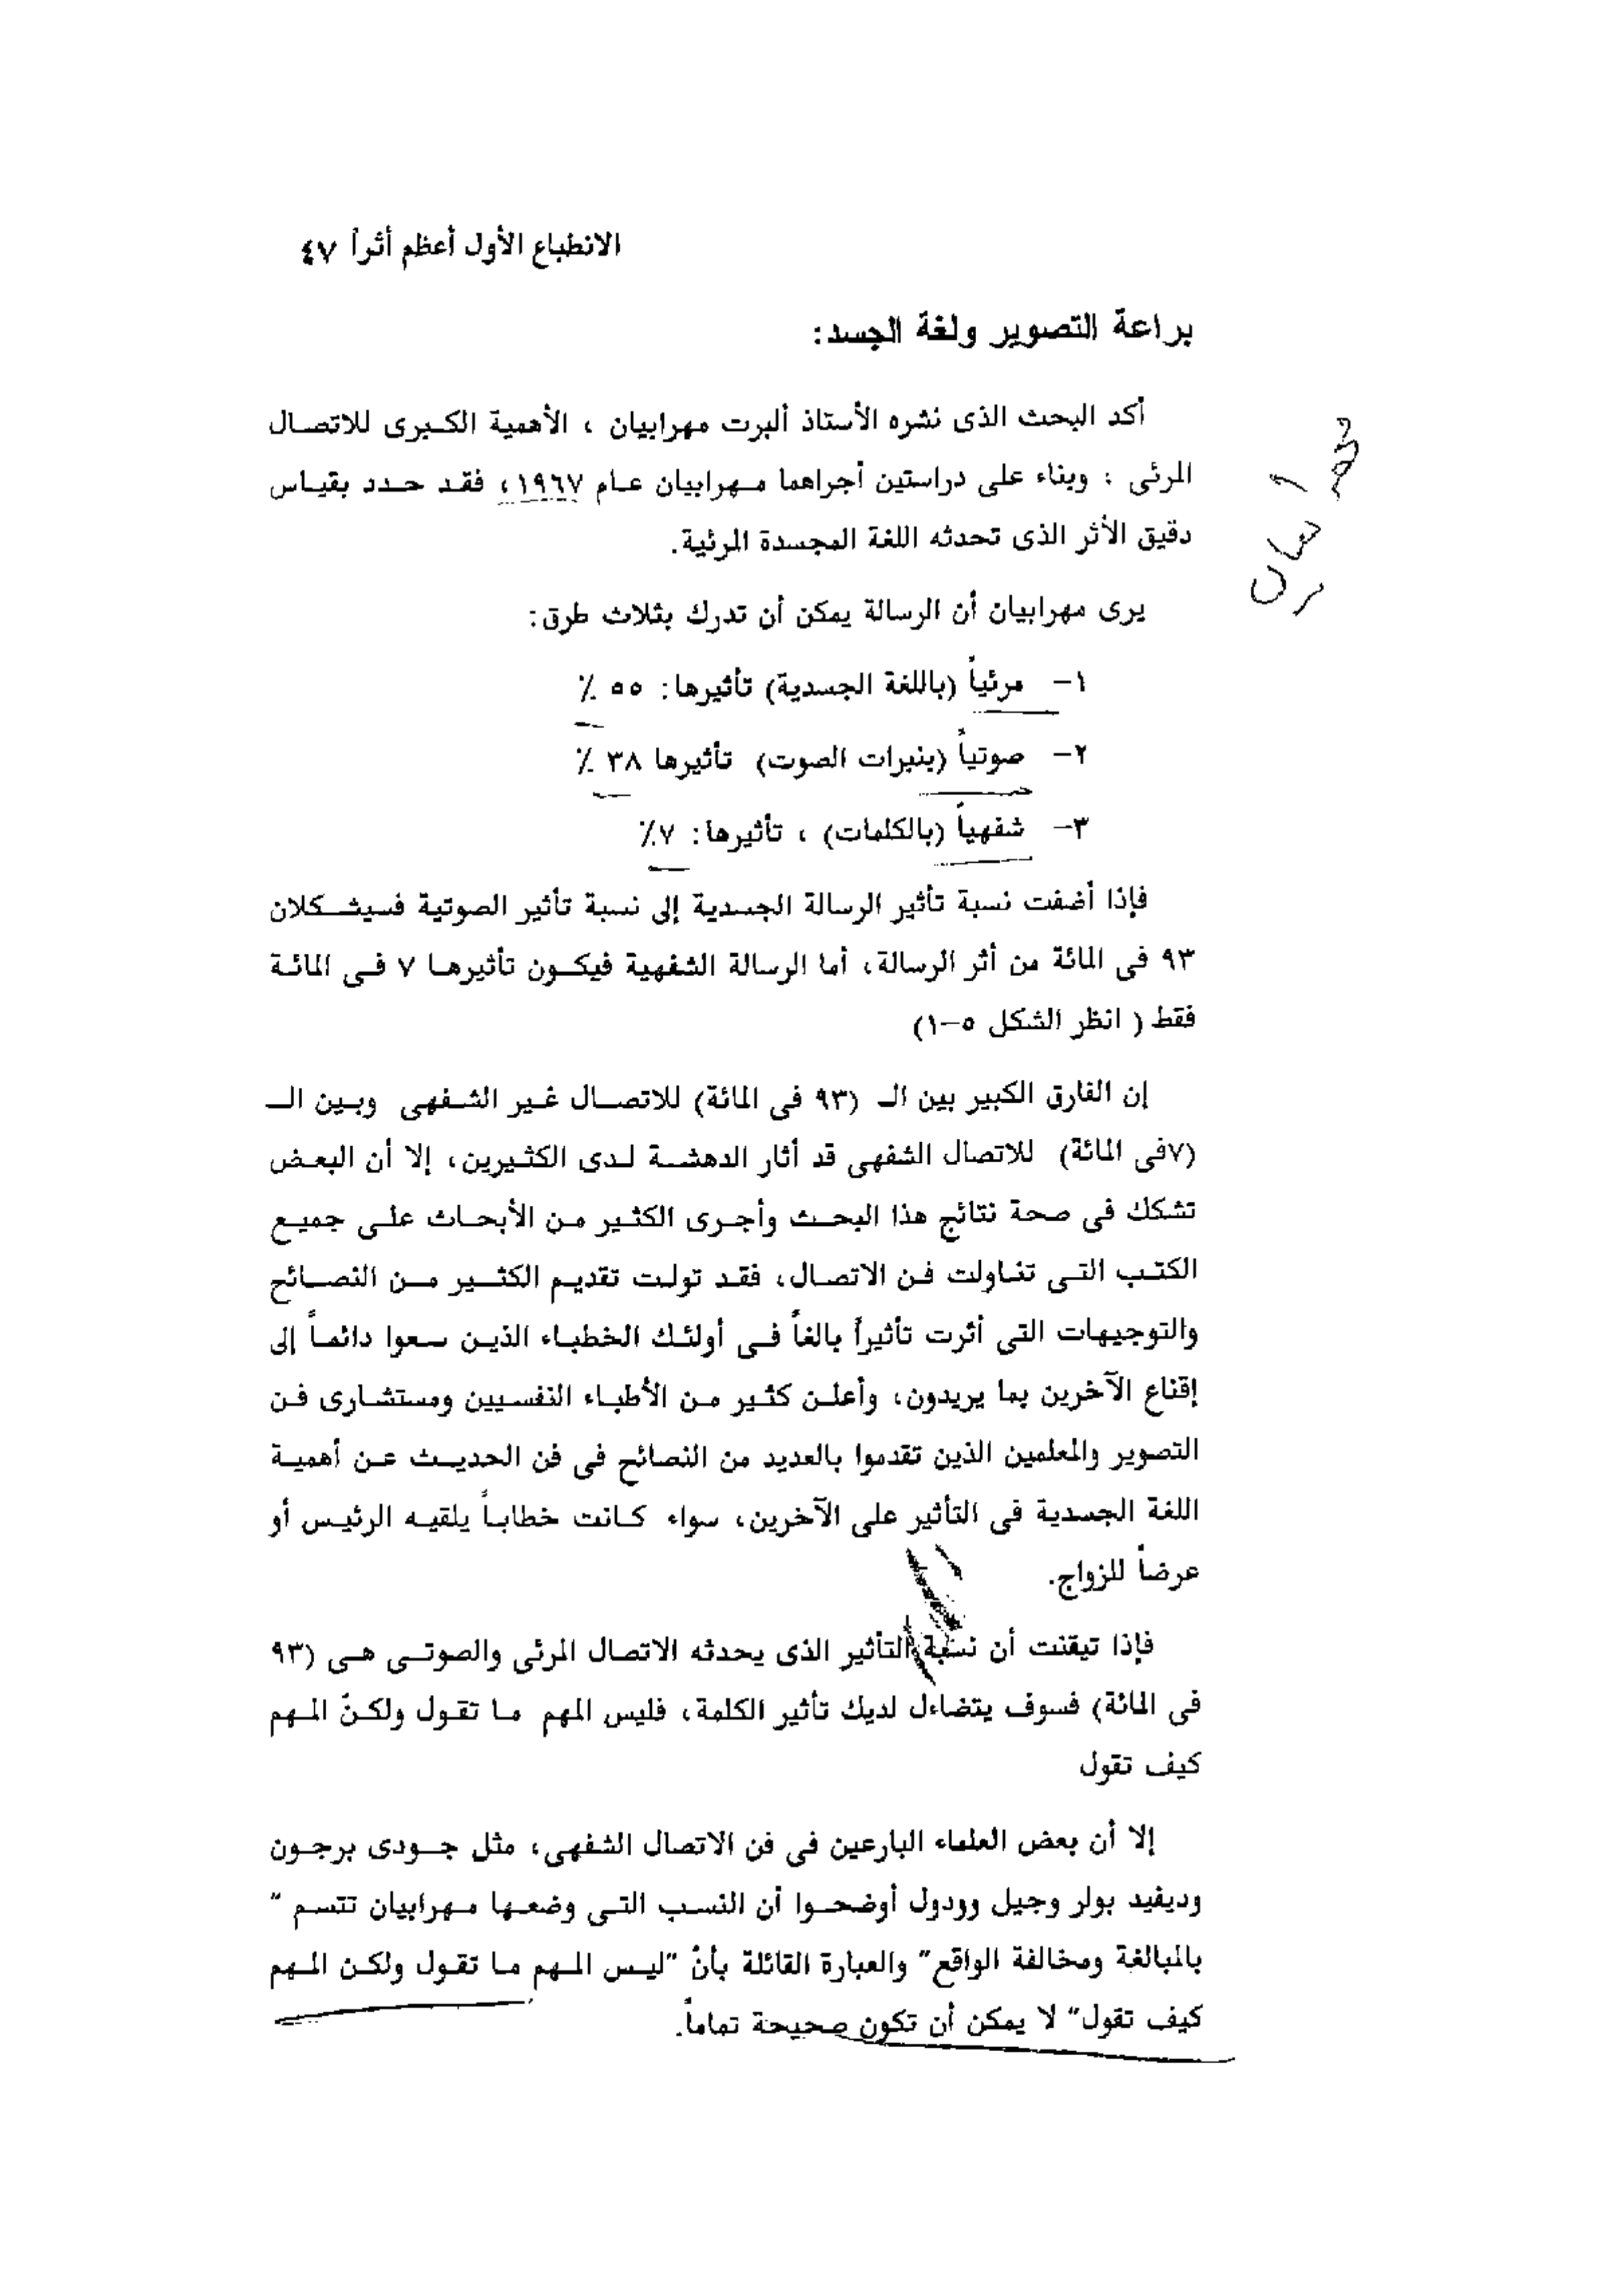 الانطباع الأول أعظم أثراً ٤٧
براعة التصوير ولغة الجسد:
أكد البحث الذى نشره الأستاذ ألبرت مهرابيان ، الأهمية الكبرى للاتصال
المرئى ، وبناء على دراستين أجراهما مهرابيان عام ١٩٦٧، فقد حدد بقياس
دقيق الأثر الذى تحدثه اللغة المجسدة المرئية.
يرى مهرابيان أن الرسالة يمكن أن تدرك بثلاث طرق:
١– مرئياً (باللغة الجسدية) تأثيرها: ٥٥ ٪
٢– صوتياً (بنبرات الصوت) تأثيرها ٣٨ ٪
٣– شفهياً (بالكلمات) ، تأثيرها: ٧٪
فإذا أضفت نسبة تأثير الرسالة الجسدية إلى نسبة تأثير الصوتية فسيشكلان
٩٣ فى المائة من أثر الرسالة، أما الرسالة الشفهية فيكون تأثيرها ٧ فى المائة
فقط ( انظر الشكل ٥–١)
إن الفارق الكبير بين الـ (٩٣ فى المائة) للاتصال غير الشفهى وبين الـ
(٧فى المائة) للاتصال الشفهى قد أثار الدهشة لدى الكثيرين، إلا أن البعض
تشكك فى صحة نتائج هذا البحث وأجرى الكثير من الأبحاث على جميع
الكتب التى تناولت فن الاتصال، فقد تولت تقديم الكثير من النصائح
والتوجيهات التى أثرت تأثيراً بالغاً فى أولئك الخطباء الذين سعوا دائماً إلى
إقناع الآخرين بما يريدون، وأعلن كثير من الأطباء النفسيين ومستشارى فن
التصوير والمعلمين الذين تقدموا بالعديد من النصائح فى فن الحديث عن أهمية
اللغة الجسدية فى التأثير على الآخرين، سواء كانت خطاباً يلقيه الرئيس أو
عرضاً للزواج.
فإذا تيقنت أن نسبة التأثير الذى يحدثه الاتصال المرئى والصوتى هى (٩٣
فى المائة) فسوف يتضاءل لديك تأثير الكلمة، فليس المهم ما تقول ولكنّ المهم
كيف تقول
إلا أن بعض العلماء البارعين فى فن الاتصال الشفهى، مثل جودى برجون
وديفيد بولر وجيل وودول أوضحوا أن النسب التى وضعها مهرابيان تتسم "
بالمبالغة ومخالفة الواقع" والعبارة القائلة بأنّ "ليس المهم ما تقول ولكن المهم
كيف تقول" لا يمكن أن تكون صحيحة تماماً.